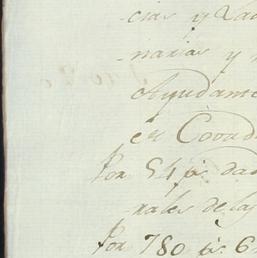 -cias y La
-narias y
Ayudam
en Covad
Por 54 ps. dad
-nales de las
Por 780 ps. 6